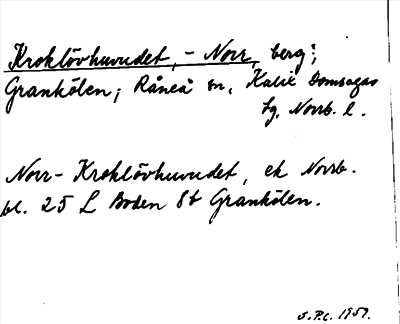 Kroklövhuvudet, - Norr, berg;
Grankölen; Råneå sn, Kalix Domsagas
tg. Norrb. l.
Norr-Kroklövhuvudet, ek Norrb.
bl. 25 L Boden 8b Grankölen.
S.P.C. 1957.